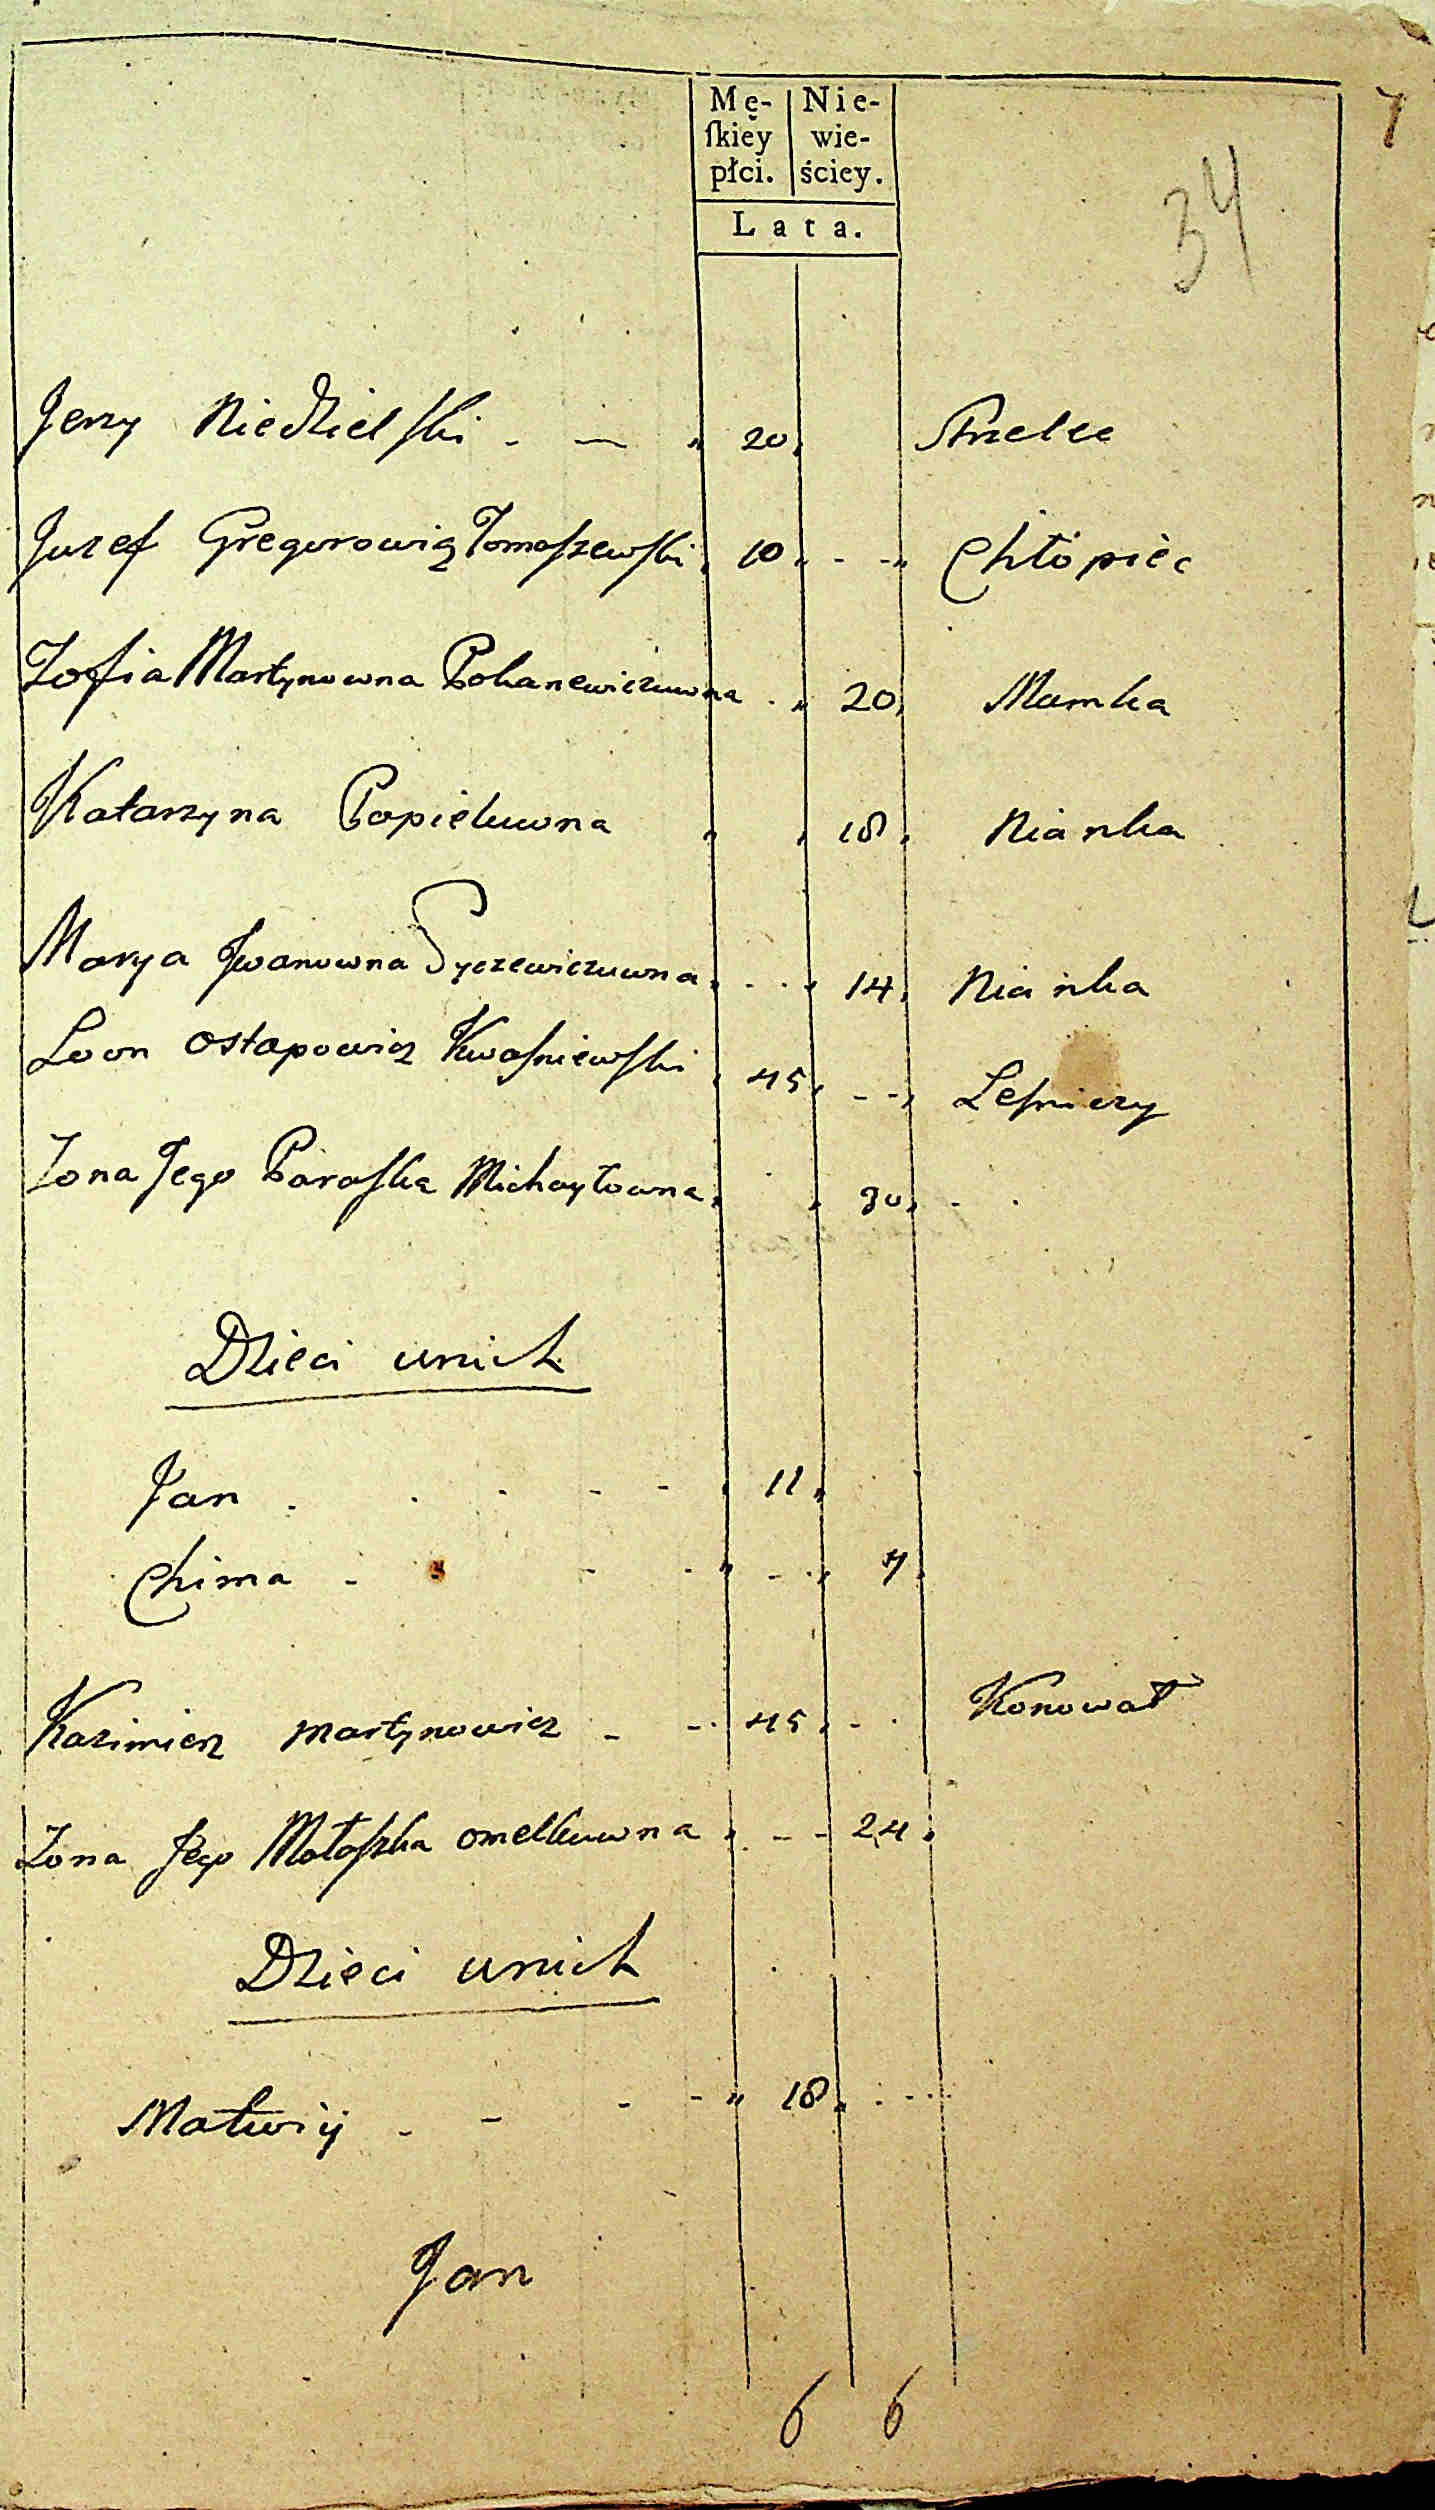 7
34
Mę- Nie-
ſkiey wie-
płci. ściey.
Lata.
Jerzy Niedzielſki 20 Strzelec
Juzef Gregorowicz Tomaſzewſki 10 Chłopiec
Zofia Martynowna Pohanewiczuwna 20 Mamka
Katarzyna Popieluwna 18 Nianka
Marya Jwanowna Pyczewiczuwna 14 Nianka
Leon Ostapowicz Kwaſniewſki 45 Leſniczy
Zona Jego Paraſka Michayłowna 30
Dzieci unich
Jan 11
Chima 7
Kazimierz Martynowicz 45 Konował
Zona Jego Mołaſzka omelkuwna 24
Dzieci unich
Matwij 18
Jan
6 6